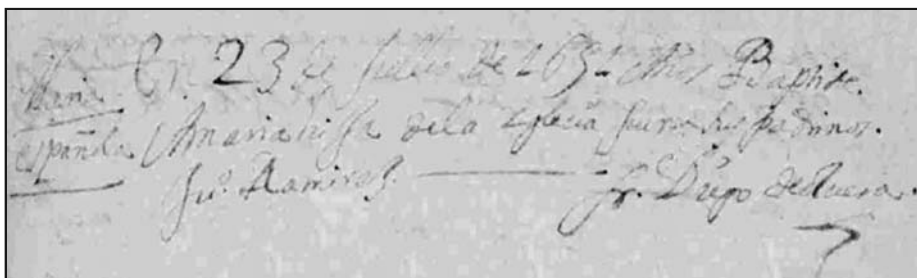 Maria
española
En 23 de Jullio de 1651 Años Baptise.
A Maria hija de la Yglesia fueron sus Padrinos.
Juº Ramires. Fr. Diego de